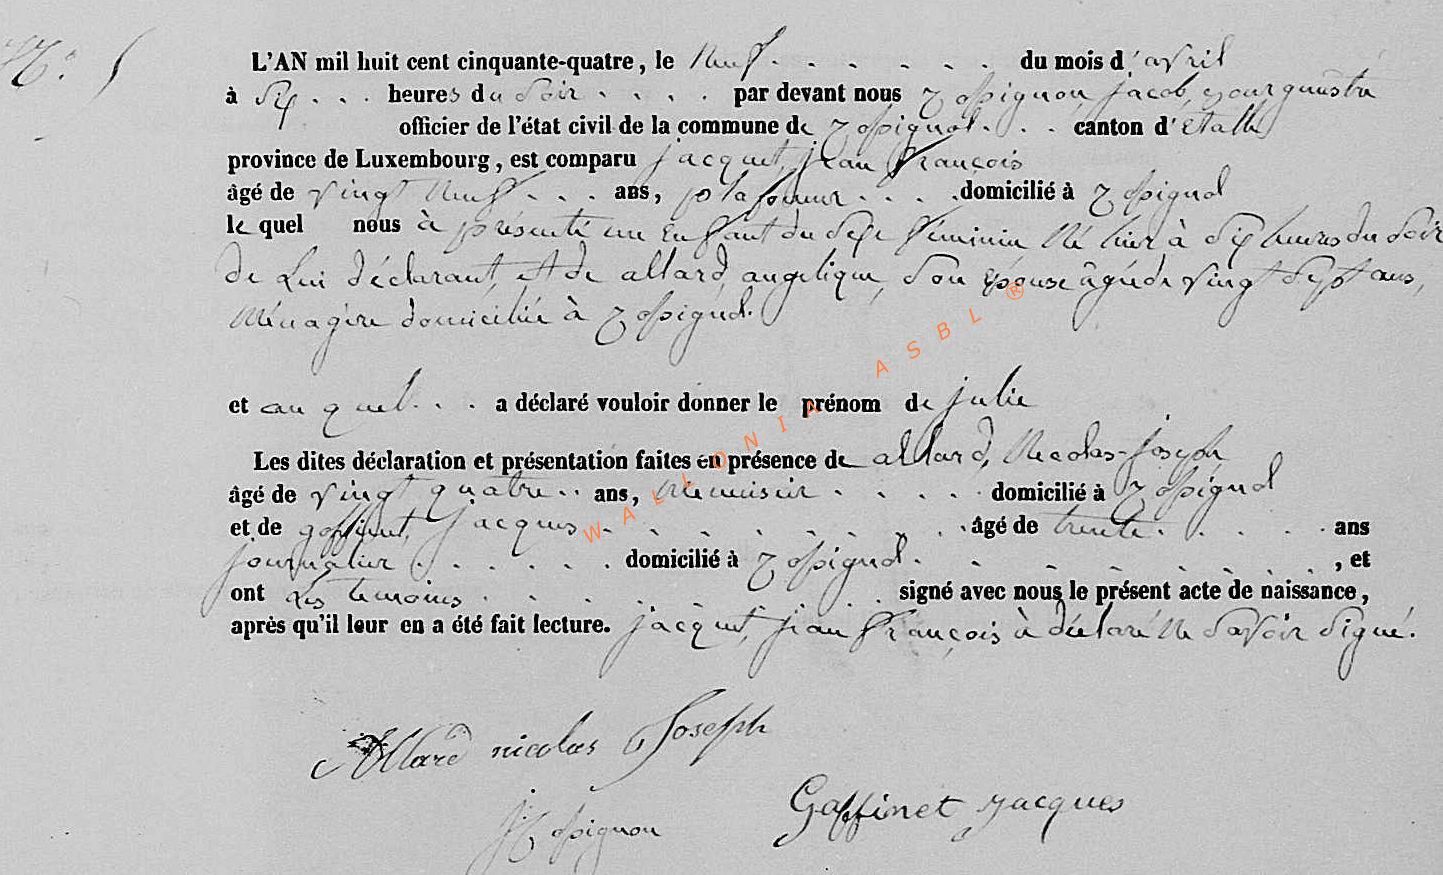 N.º 5
L'AN mil huit cent cinquante-quatre, le neuf . . . . . . du mois d'avril
à six . . . heures du soir . . . . par devant nous Rossignon, jacob, Bourguestre
officier de l'état civil de la commune de Rossignol . . . canton d'Etalle
province de Luxembourg, est comparu jacquet, jean françois
âgé de vingt neuf . . . ans, plafoneur . . . . domicilié à Rossignol
le quel nous à présenté un Enfant du sexe féminin Né hier à six heures du soir
de Lui déclarant, et de allard, angelique, son épouse âgée de vingt sept ans,
Ménagère domiciliée à Rossignol.
et au quel . . . a déclaré vouloir donner le prénom de julie
Les dites déclaration et présentation faites en présence de allard, Nicolas-joseph
âgé de vingt quatre . . ans, menuisier . . . . . domicilié à Rossignol
et de goffinet, jacques . . . . . . . . âgé de trente . . . . . ans
journalier . . . . . . domicilié à Rossignol . . . . . . . , et
ont Les temoins . . . . . . . signé avec nous le présent acte de naissance,
après qu'il leur en a été fait lecture. jacquet, jean françois à déclaré Ne savoir signé.
Allard nicolas Joseph
Goffinet Jacques
J Rossignon
WALLONIA ASBL ®